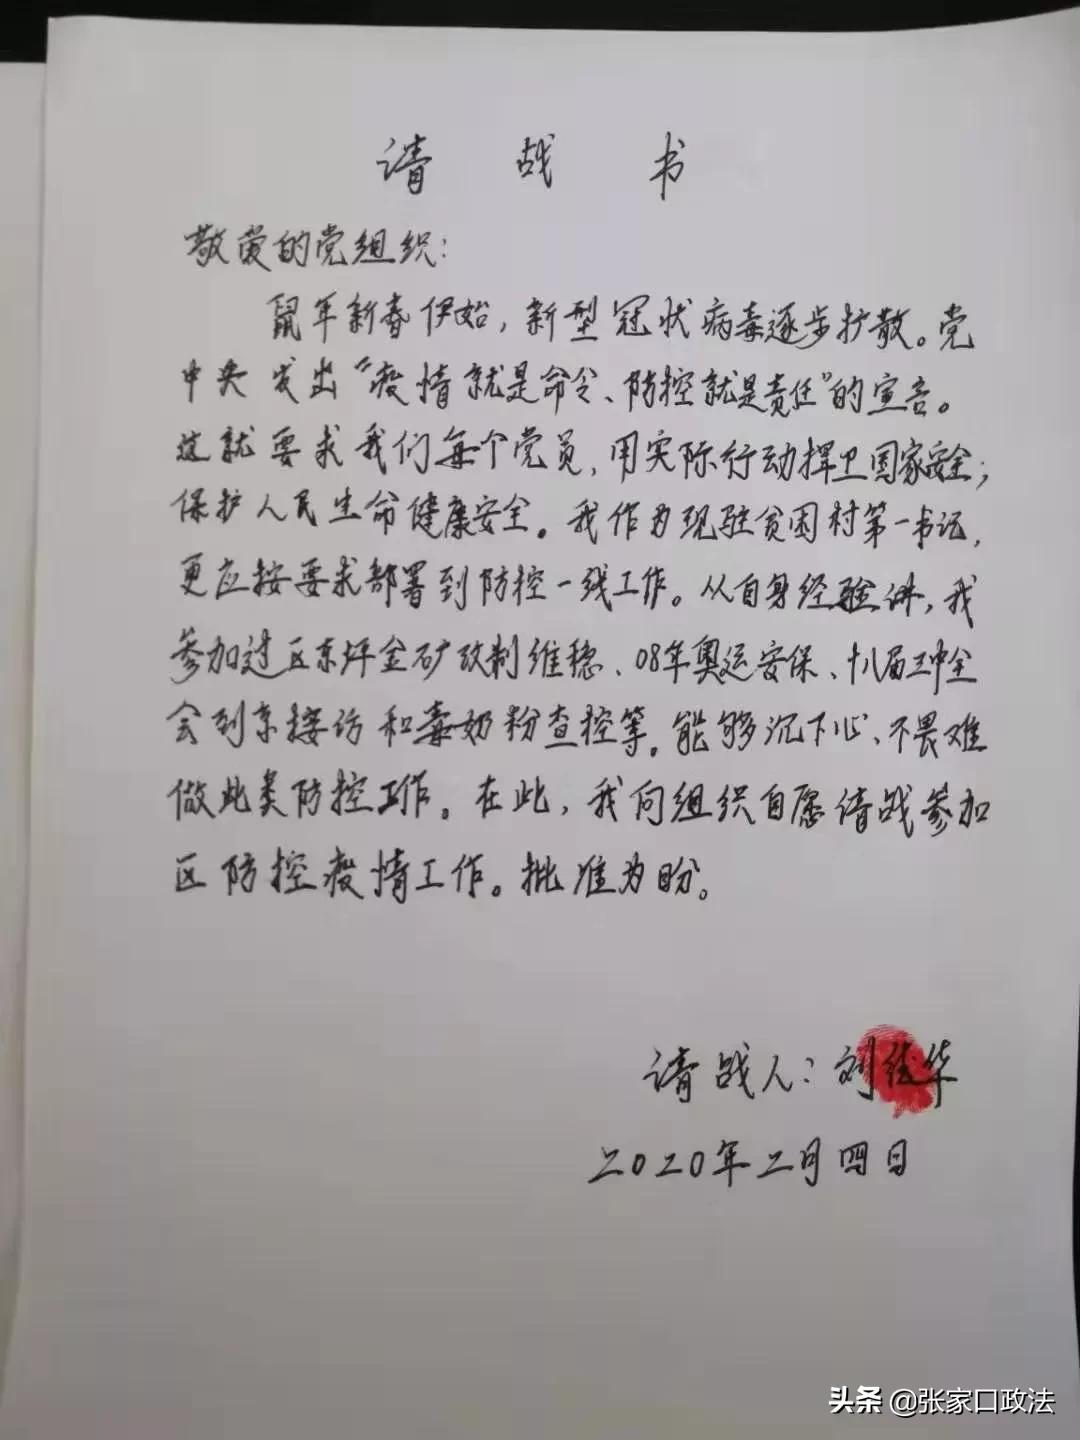 请战书
敬爱的党组织：
鼠年新春伊始，新型冠状病毒逐步扩散。党
中央发出“疫情就是命令、防控就是责任”的宣告。
这就要求我们每个党员，用实际行动捍卫国家安全；
保护人民生命健康安全。我作为现驻贫困村第一书记，
更应按要求部署到防控一线工作。从自身经验讲，我
参加过区东坪金矿改制维稳、08年奥运安保、十八届三中全
会到京接访和毒奶粉查控等。能够沉下心、不畏难
做此类防控工作。在此，我向组织自愿请战参加
区防控疫情工作。批准为盼。
请战人：刘华
2020年二月四日
头条 @张家口政法